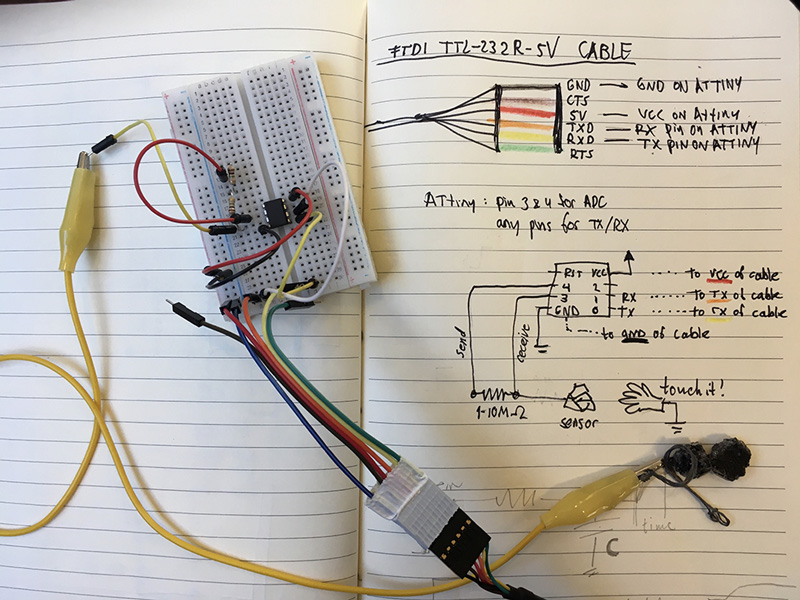 FTDI TTL-232R-5V CABLE
GND → GND ON ATTINY
CTS
5V — VCC ON ATTINY
TXD — RX PIN ON ATTINY
RXD — TX PIN ON ATTINY
RTS
ATTiny: pin 3 & 4 for ADC
any pins for TX/RX
RST VCC ..... to VCC of cable
4 2
3 1 RX ..... to TX of cable
GND 0 TX ..... to RX of cable
... to GND of cable
send
receive
1-10MΩ
sensor
touch it!
time
C